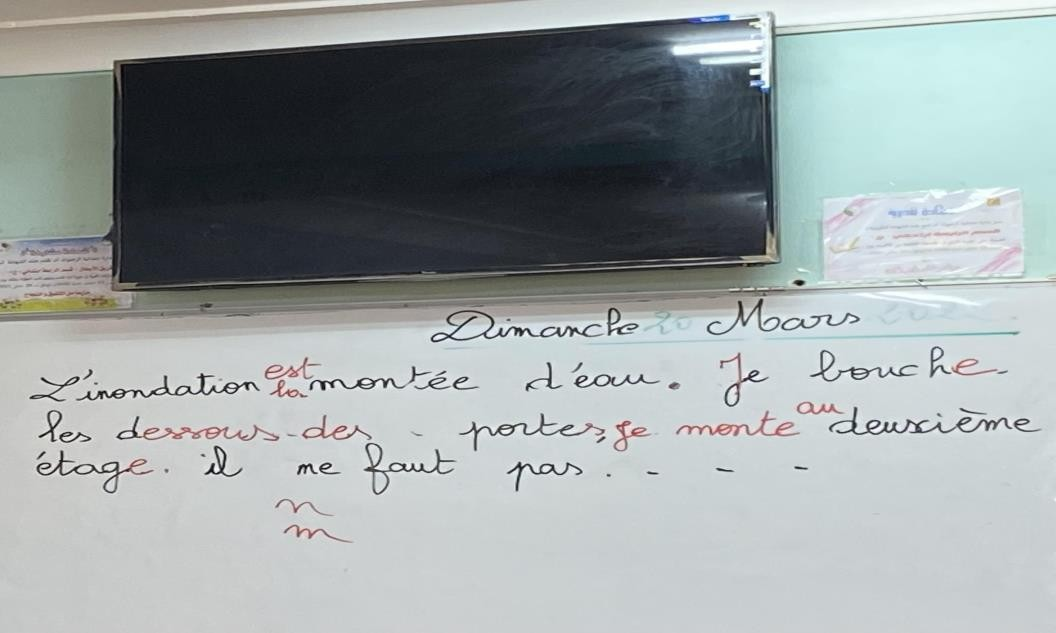 Dimanche 20 Mars
L'inondation est la montée d'eau. Je bouche
les dessous des portes, je monte au deuxième
étage. il ne faut pas. - - -
n
m